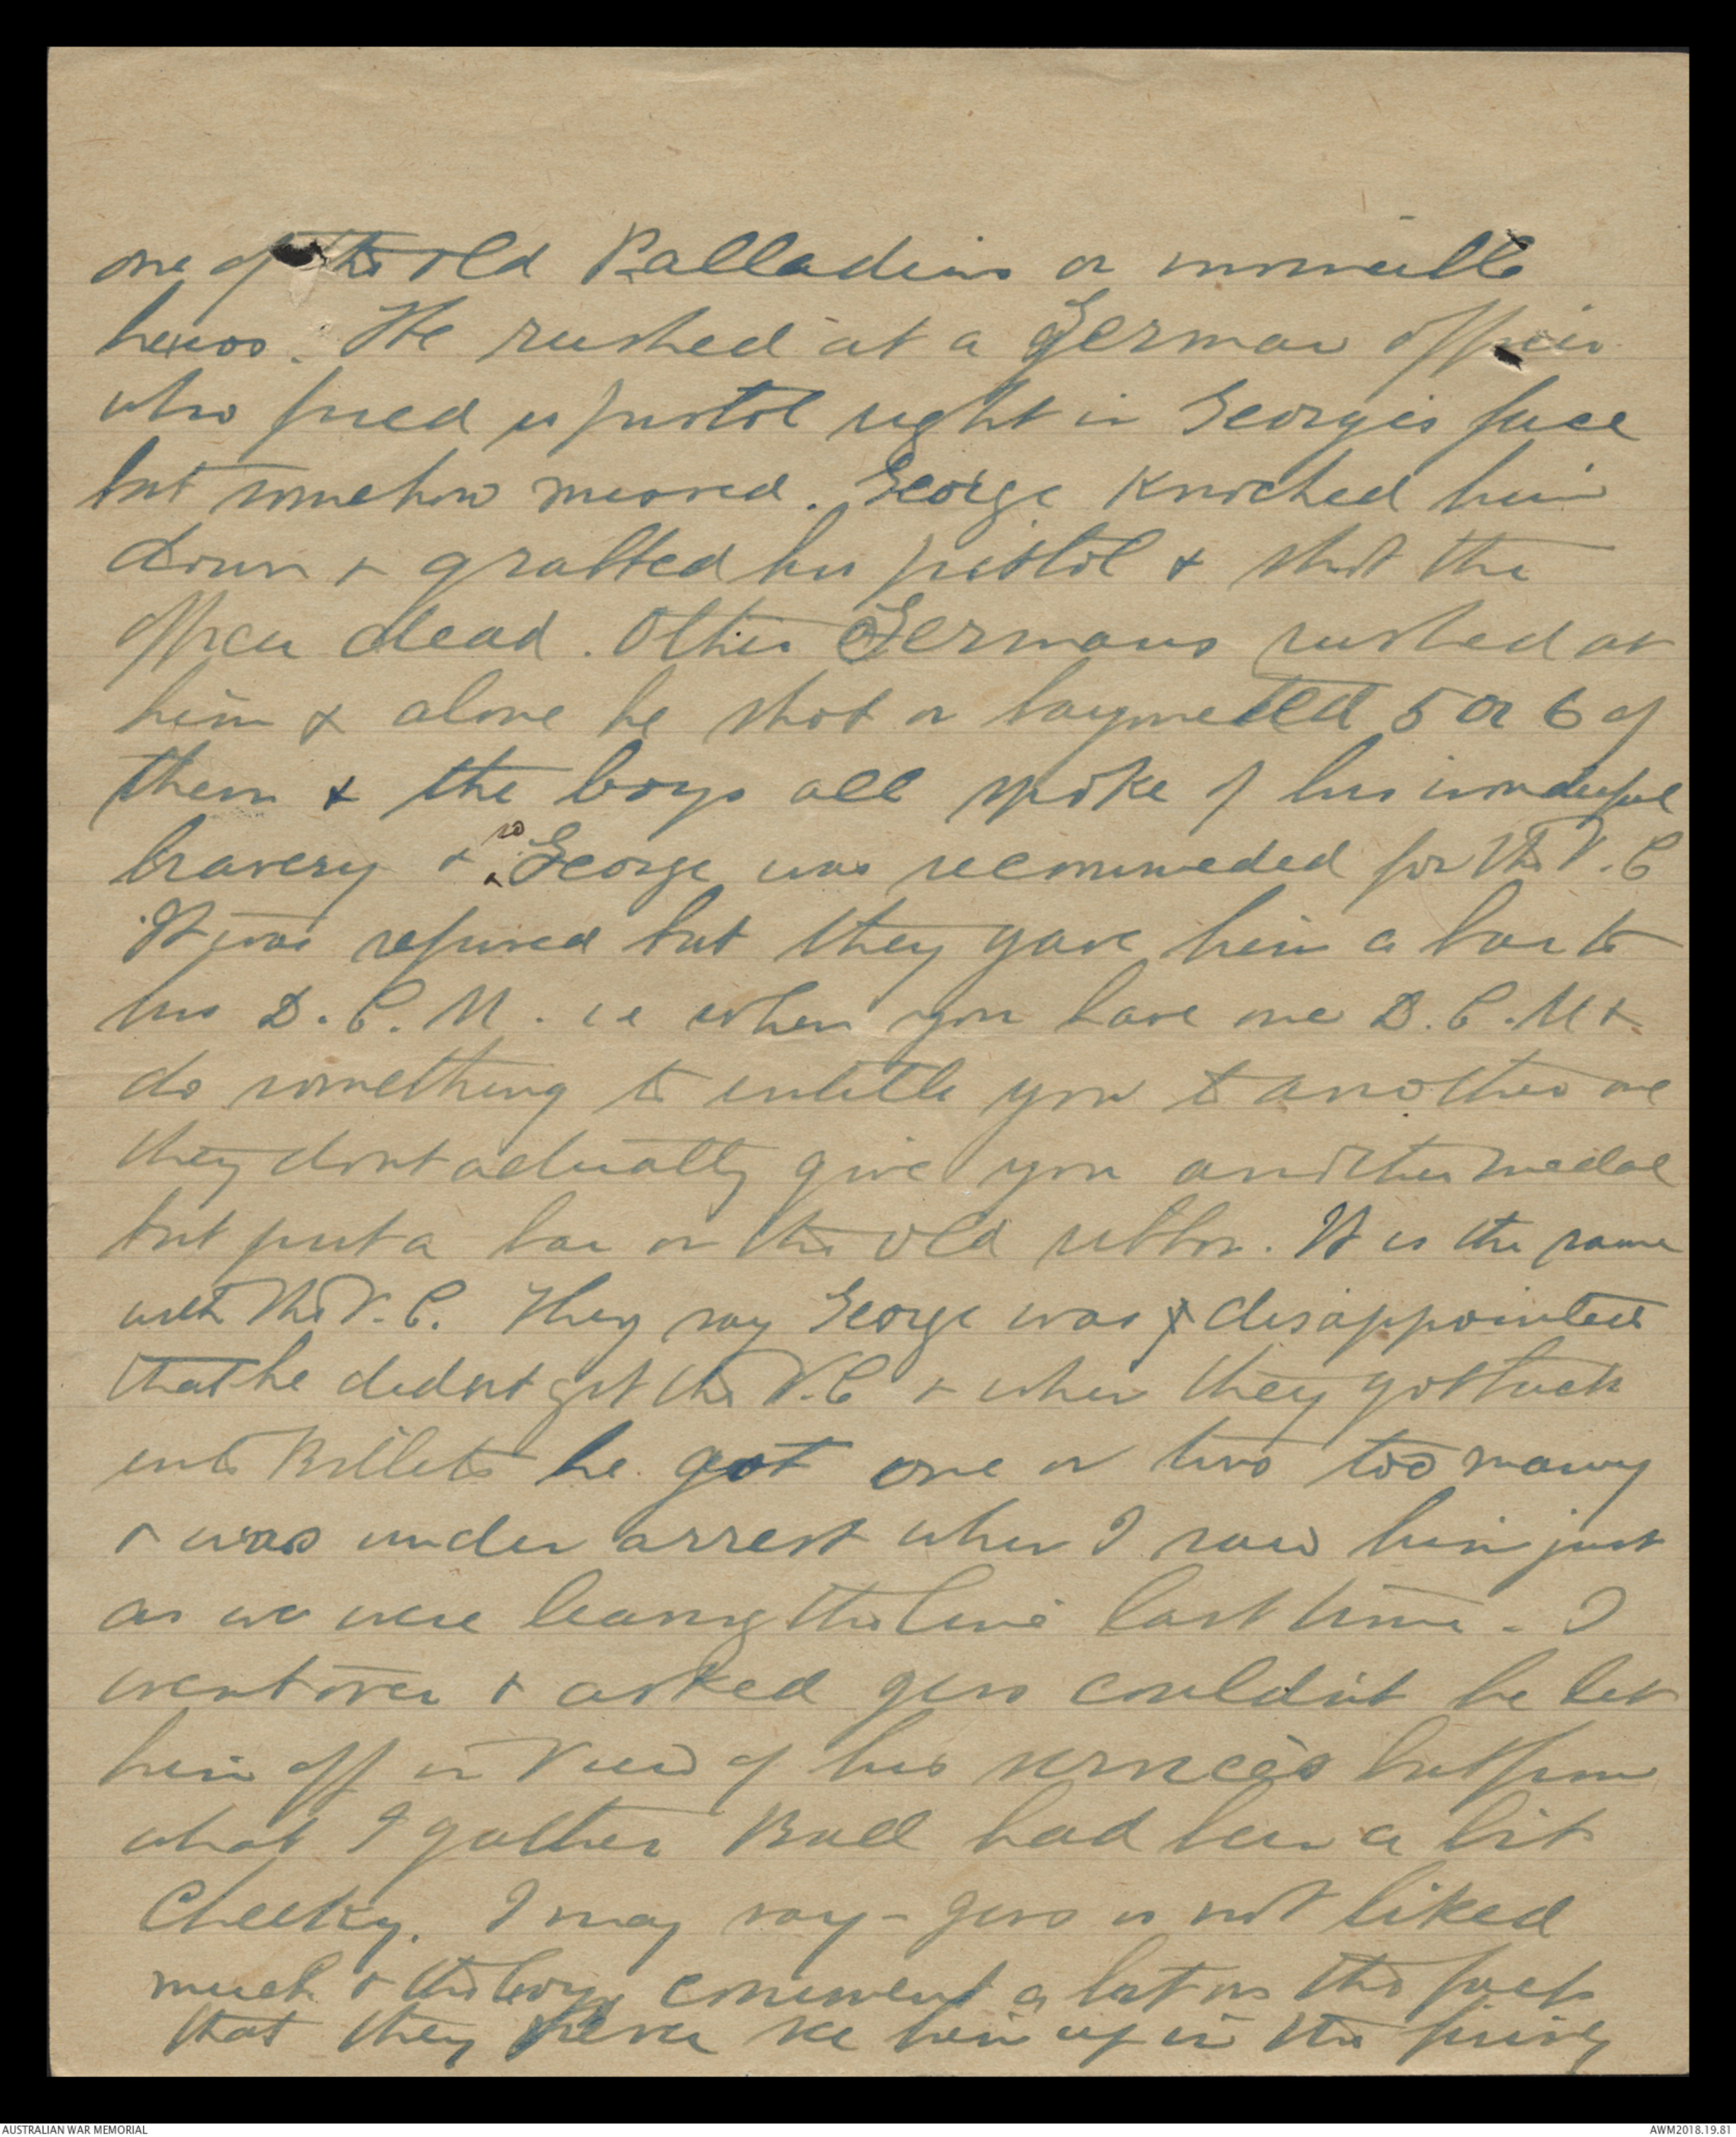 one of the old Palladins or
heros. He rushed at a German officer
who fired a pistol right in George's face
but somehow missed. George knocked him
down & grabbed his pistol & shot the
officer dead. Other Germans rushed at
him & alone he shot or bayonetted 5 or 6 of
them & the boys all spoke of his wonderful
bravery & so George was recommeded for the V.C
It was refused but they gave him a bar to
his D.C.M. ie when you have one D.C.M &
do something to entitle you to another one
they dont actually give you another medal
but put a bar on the old ribbon. It is the same
with the V.C. They say George was disappointed
that he didnt get the V.C & when they got back
into Billets he got one or two too many
& was under arrest when I saw him just
as we were leaving the line last time - I
went over & asked couldn't he let
him off in view of his services but from
what I gather Ball had been a bit
cheeky. I may say - is not liked
much & the boys comment a lot on the fact
that they never see him up in the firing
AUSTRALIAN WAR MEMORIAL
AWM2018.19.81